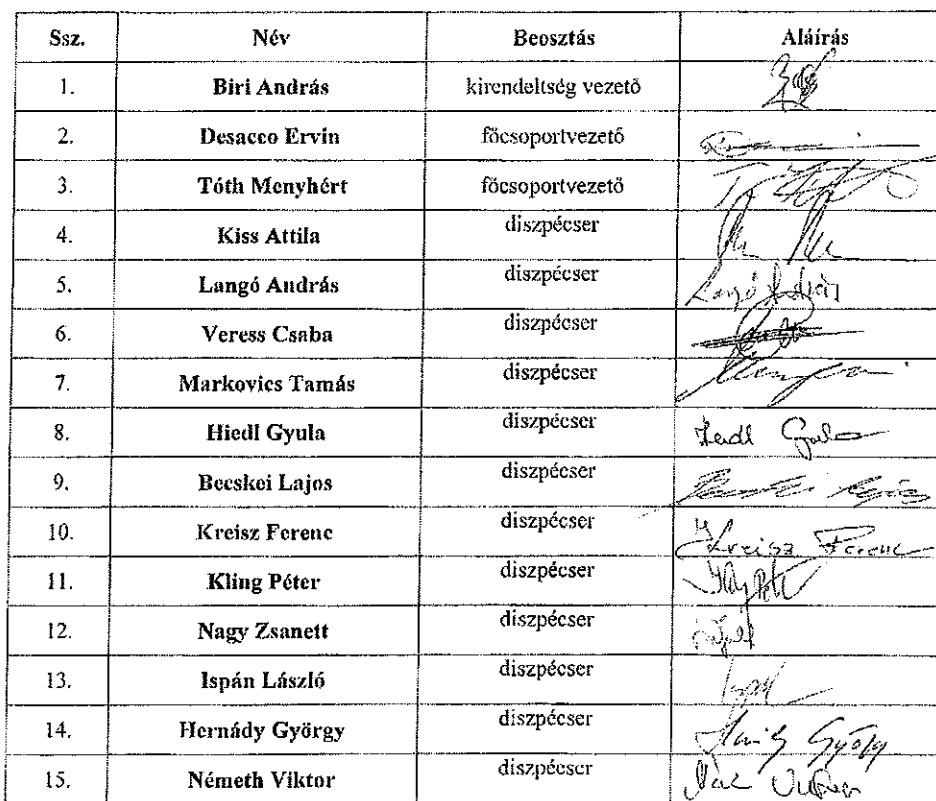 Ssz. Név Beosztás Aláírás
1. Biri András kirendeltség vezető
2. Desacco Ervin főcsoportvezető
3. Tóth Menyhért főcsoportvezető
4. Kiss Attila diszpécser
5. Langó András diszpécser Langó András
6. Veress Csaba diszpécser
7. Markovics Tamás diszpécser
8. Hiedl Gyula diszpécser
9. Becskei Lajos diszpécser
10. Kreisz Ferenc diszpécser Kreisz Ferenc
11. Kling Péter diszpécser
12. Nagy Zsanett diszpécser
13. Ispán László diszpécser
14. Hernády György diszpécser György
15. Németh Viktor diszpécser